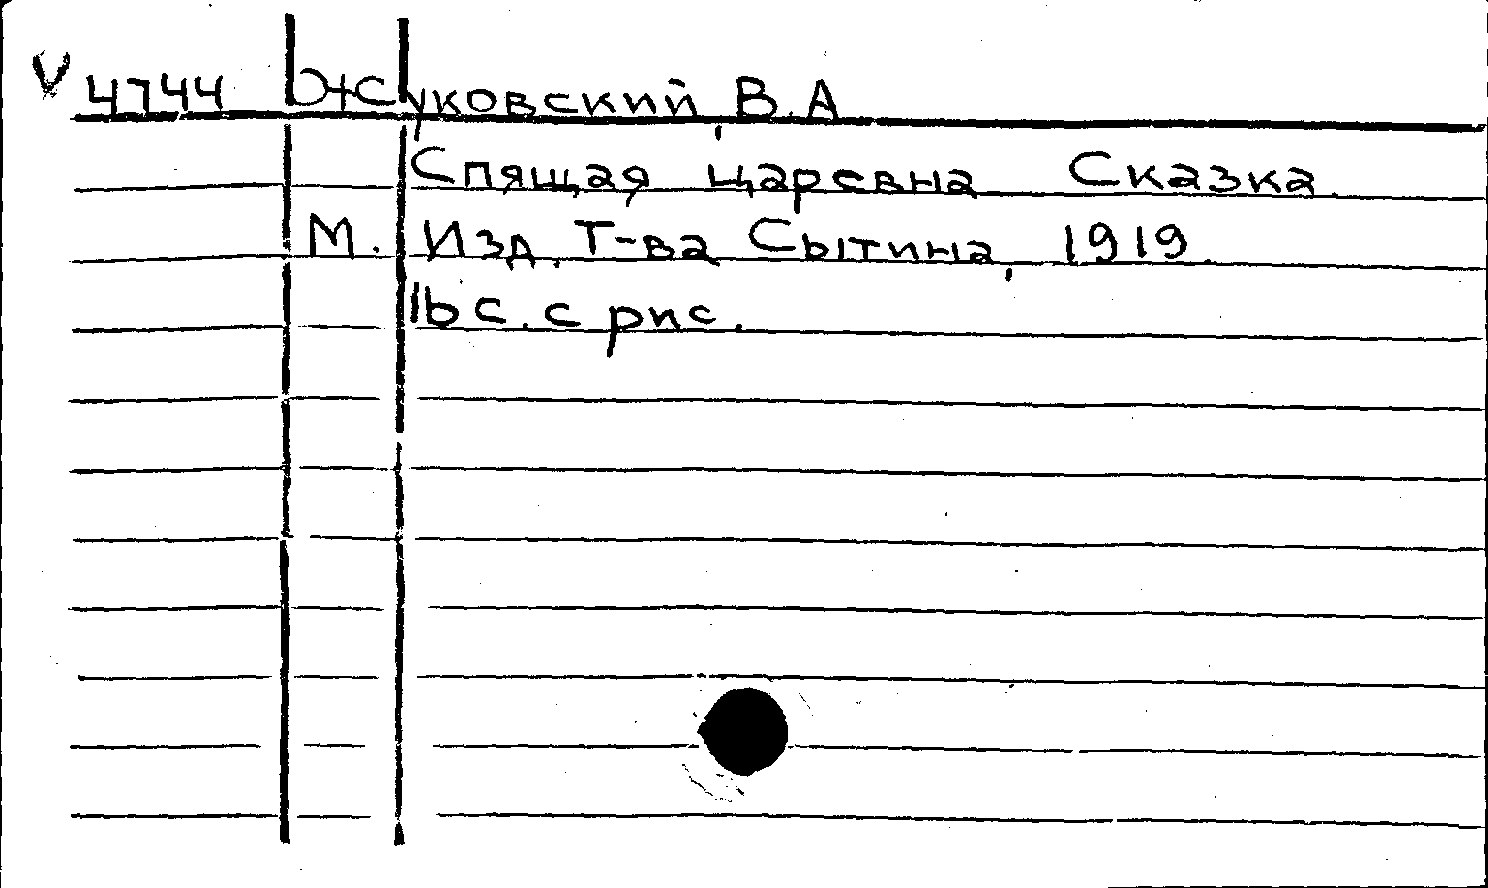 V 4744 Жуковский, В.А
Спящая царевна Сказка.
М. Изд. Т-ва Сытина, 1919.
16 с. с рис.